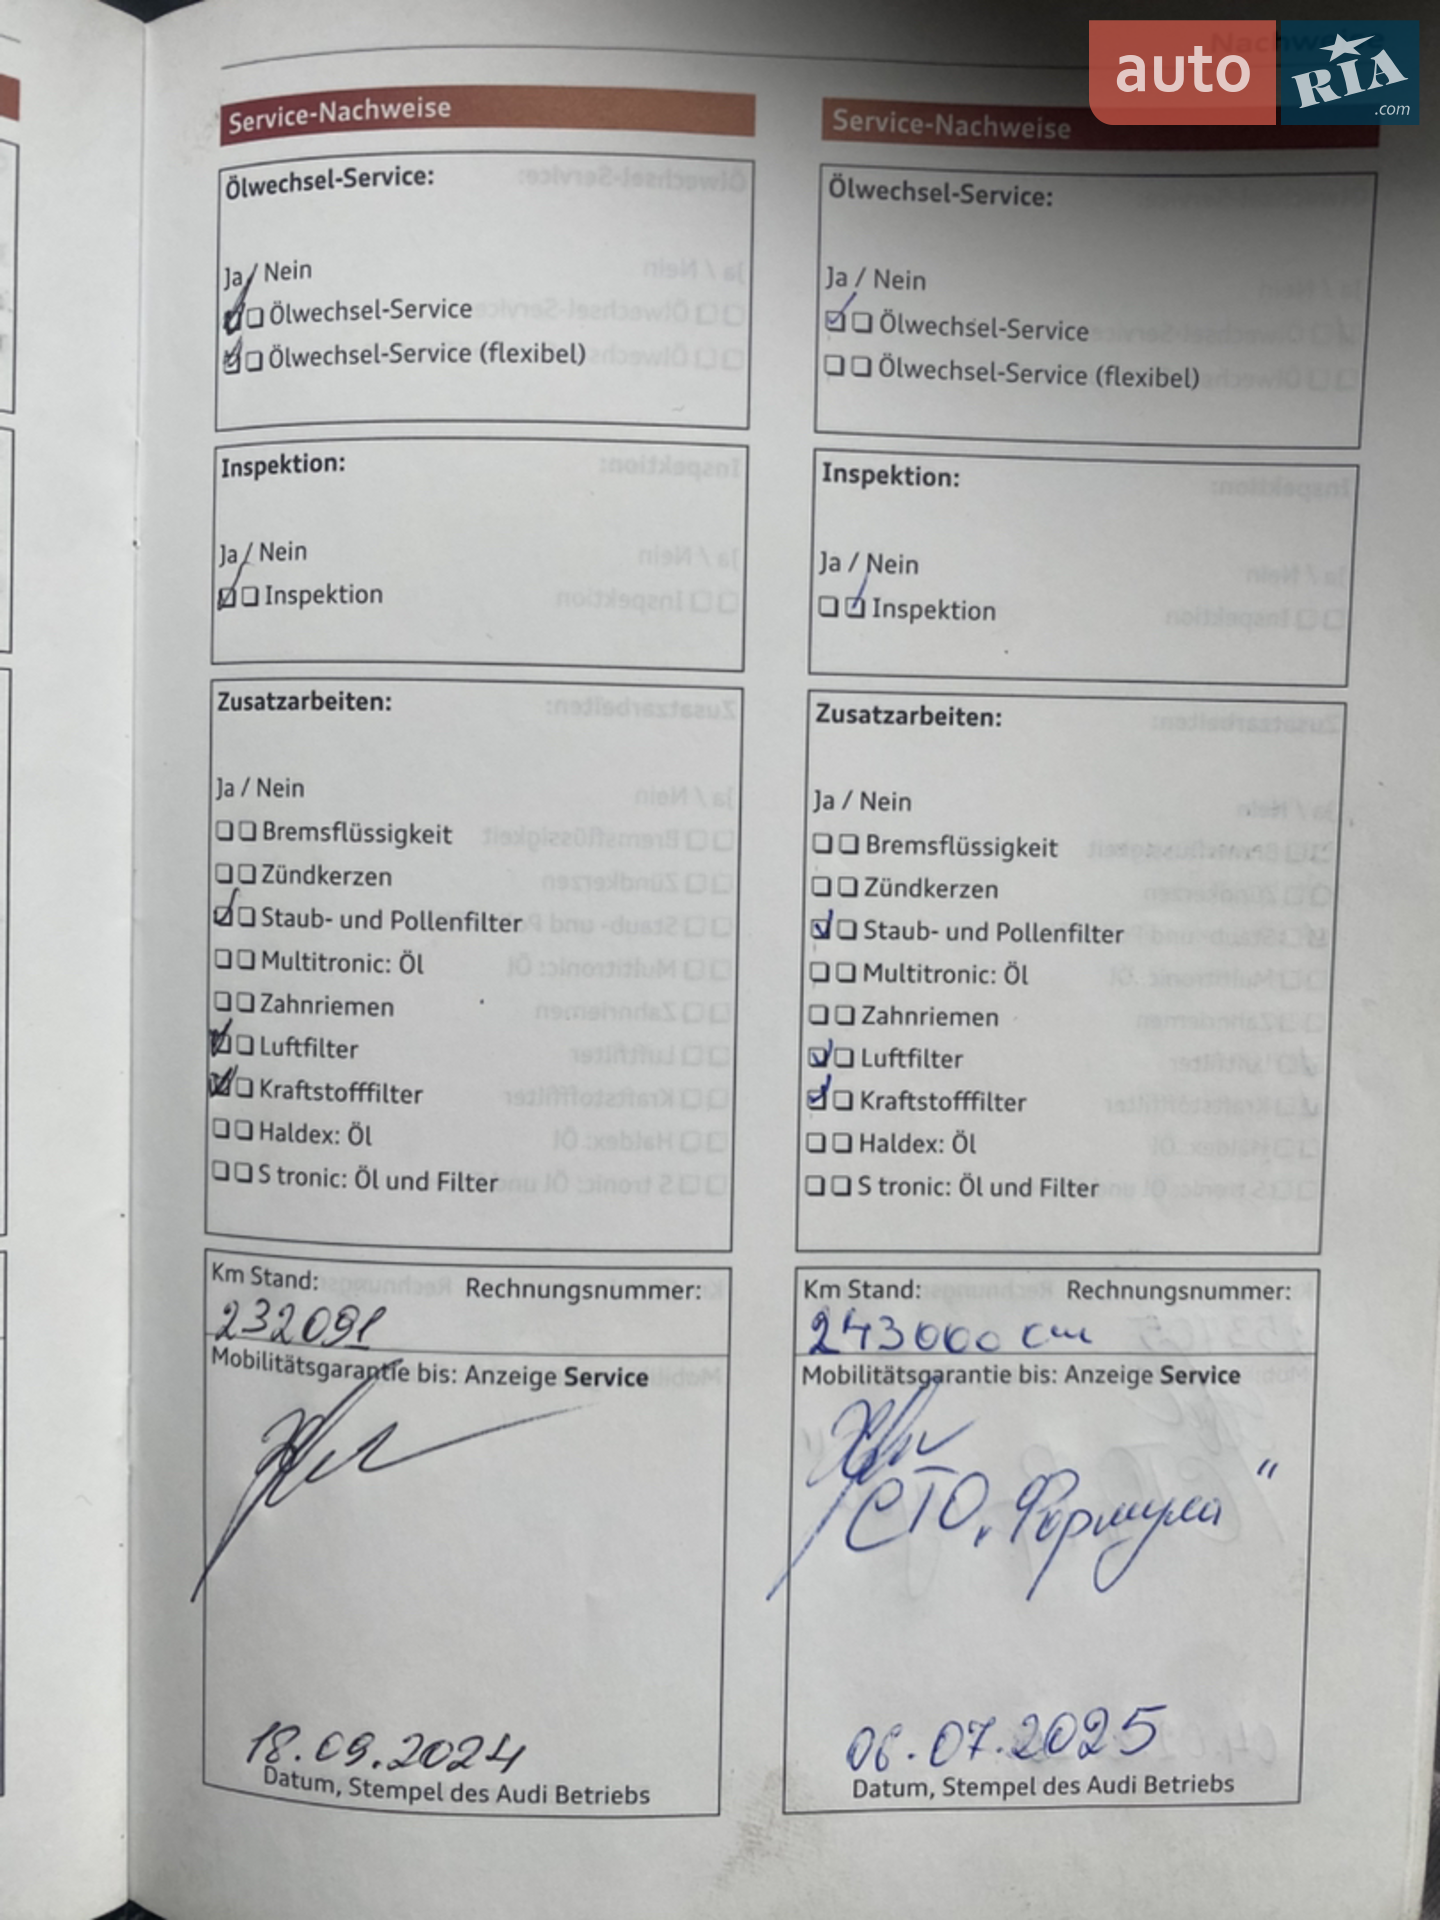 auto RIA .com
Nachweise
Service-Nachweise
Ölwechsel-Service:
Ja / Nein
Ölwechsel-Service
Ölwechsel-Service (flexibel)
Inspektion:
Ja / Nein
Inspektion
Zusatzarbeiten:
Ja / Nein
Bremsflüssigkeit
Zündkerzen
Staub- und Pollenfilter
Multitronic: Öl
Zahnriemen
Luftfilter
Kraftstofffilter
Haldex: Öl
S tronic: Öl und Filter
Km Stand: Rechnungsnummer:
232091
Mobilitätsgarantie bis: Anzeige Service
18.09.2024
Datum, Stempel des Audi Betriebs
Service-Nachweise
Ölwechsel-Service:
Ja / Nein
Ölwechsel-Service
Ölwechsel-Service (flexibel)
Inspektion:
Ja / Nein
Inspektion
Zusatzarbeiten:
Ja / Nein
Bremsflüssigkeit
Zündkerzen
Staub- und Pollenfilter
Multitronic: Öl
Zahnriemen
Luftfilter
Kraftstofffilter
Haldex: Öl
S tronic: Öl und Filter
Km Stand: Rechnungsnummer:
243000
Mobilitätsgarantie bis: Anzeige Service
СТО „Формула"
06.07.2025
Datum, Stempel des Audi Betriebs